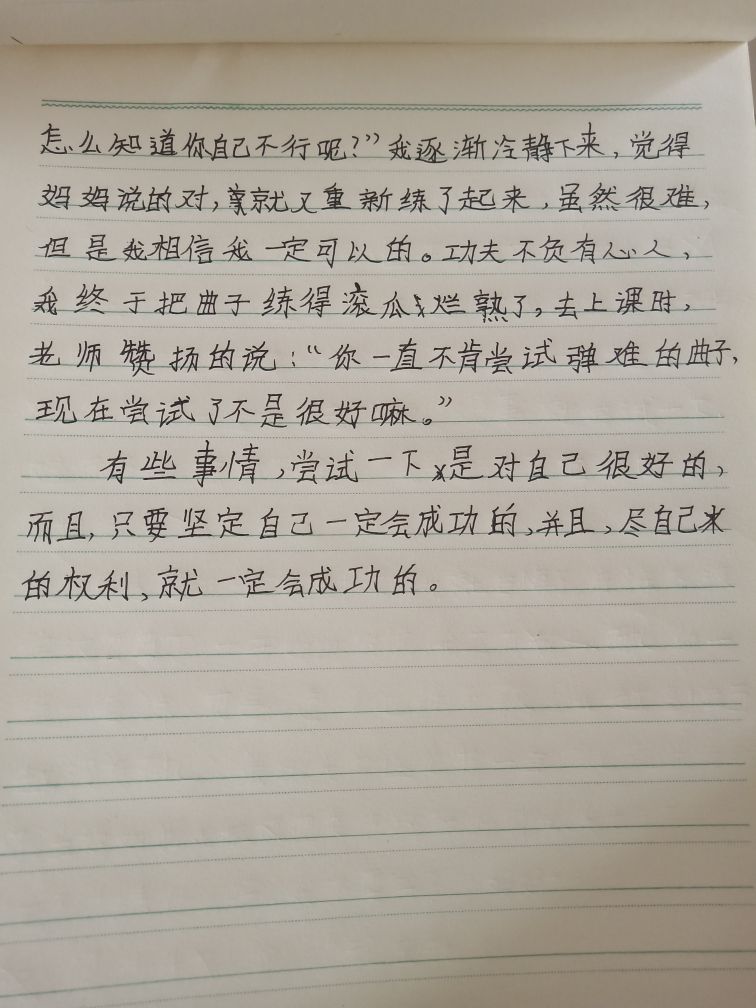 怎么知道你自己不行呢?”我逐渐冷静下来,觉得
妈妈说的对,就又重新练了起来,虽然很难,
但是我相信我一定可以的。功夫不负有心人,
我终于把曲子练得滚瓜烂熟了。去上课时,
老师赞扬的说:“你一直不肯尝试弹难的曲子,
现在尝试了不是很好嘛。”
有些事情,尝试一下是对自己很好的,
而且,只要坚定自己一定会成功的,并且,尽自己
的权利,就一定会成功的。